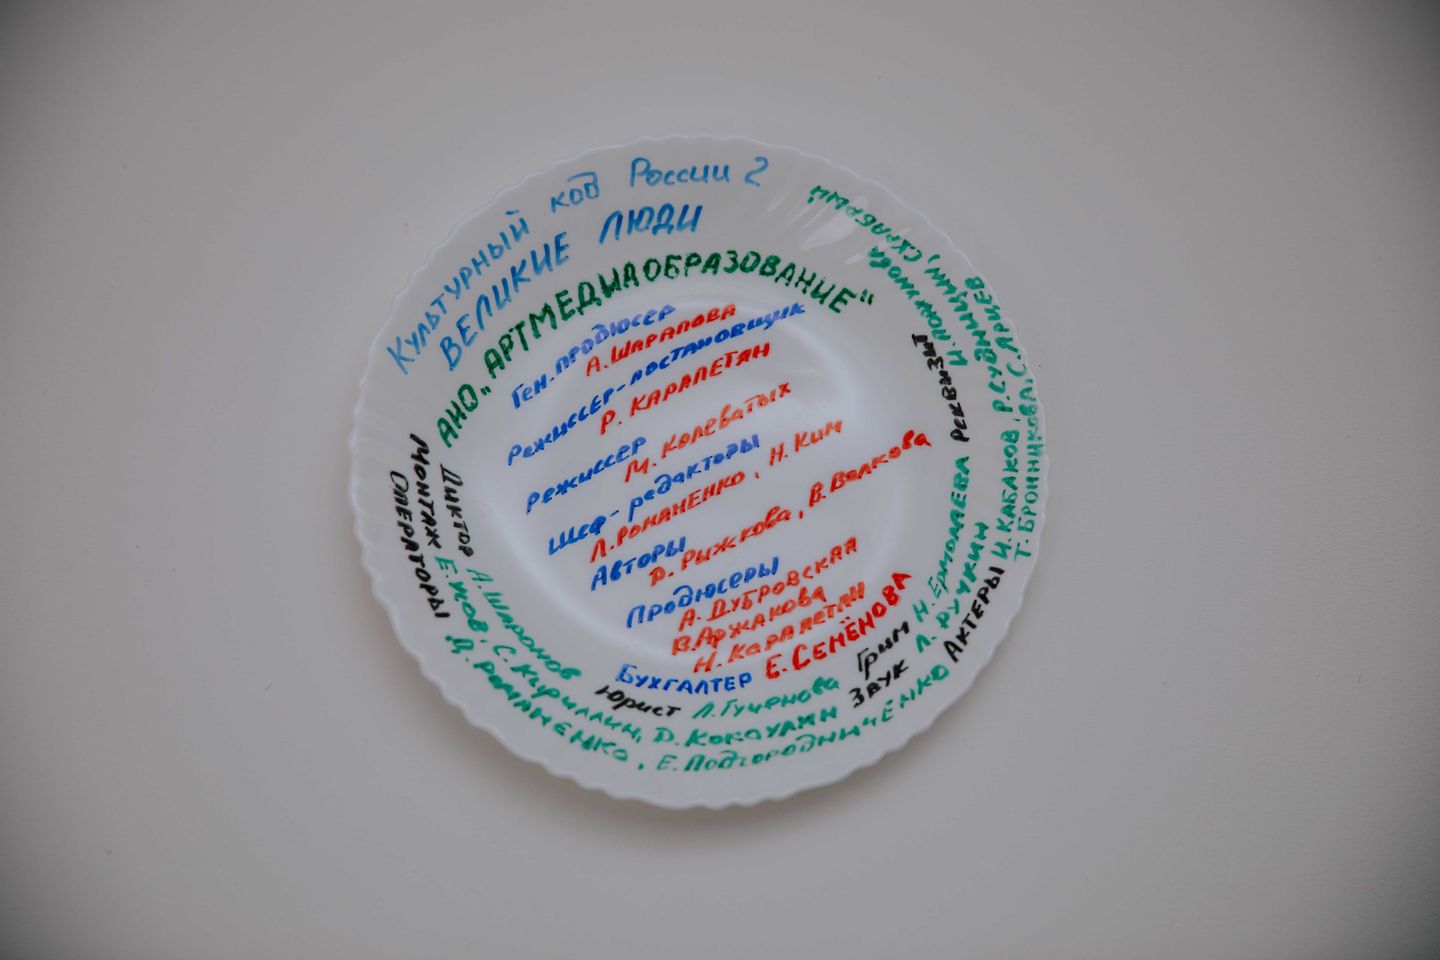 Культурный код России 2
ВЕЛИКИЕ ЛЮДИ
АНО „АРТМЕДИАОБРАЗОВАНИЕ"
Ген. продюсер
А. Шарапова
Режиссер-постановщик
Р. КАРАПЕТЯН
Режиссер
М. Колеватых
Шеф-редакторы
Л. Романенко, Н. Ким
Авторы
Д. Рыжкова, В. Волкова
Продюсеры
А. Дубровская
В. Аржакова
Н. Карапетян
Бухгалтер Е. СЕМЁНОВА
Диктор А. Шаронов
Юрист Л. Гученова
Грим Н. Ермолаева
Реквизит И. Ломунова
Монтаж Е. Ужов, С. Кириллин, Д. Кокоулин
Звук Л. Ручкин
Операторы Д. Романенко, Е. Подгородниченко
Актеры И. КАБАКОВ, Р. Судницин, Скрабрый
Т. БРОННИКОВА, С. Ярцев